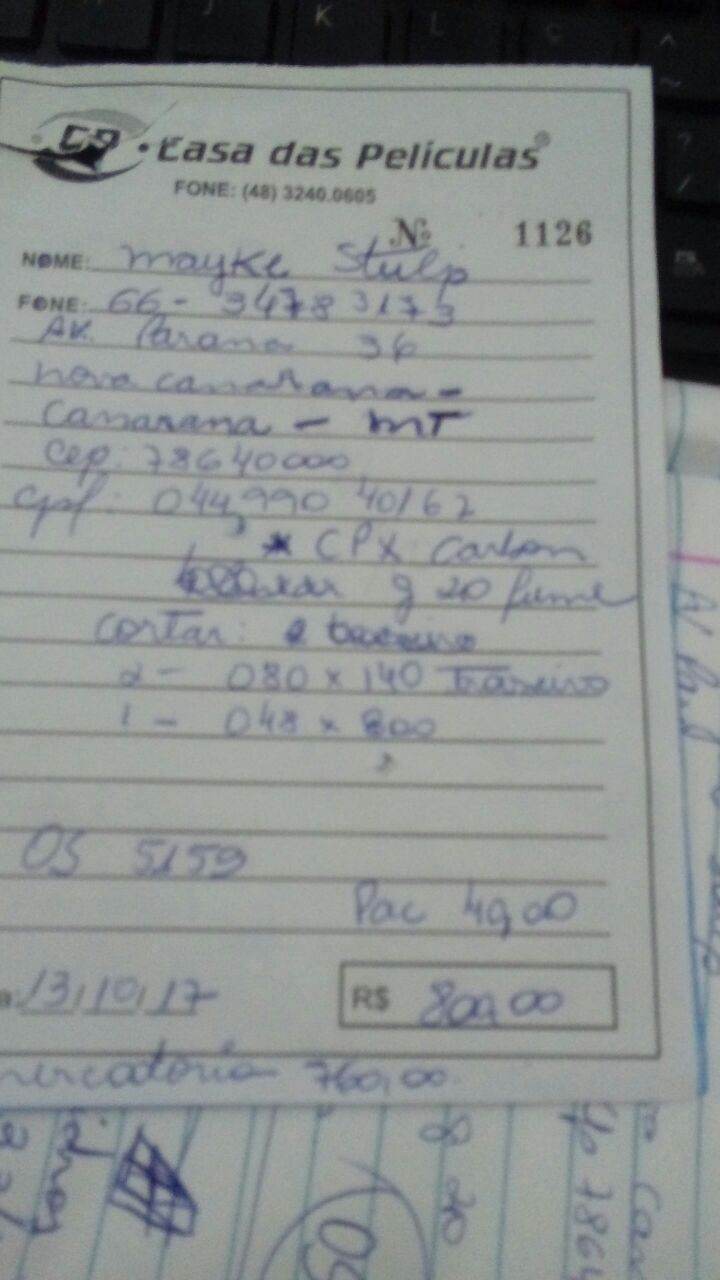 Casa das Películas®
FONE: (48) 3240.0605
Nº 1126
NOME: Mayke Stulp
FONE: 66 - 34783173
Av. Parana 36
nova canarana -
canarana - MT
Cep: 78640000
Cpf: 044,990 40/62
* CPX Carbon
g 20 fume
cortar:
2 - 080 x 140 Traseiro
1 - 048 x 800
OS 5159
Pac 40,00
13/10/17 R$ 800,00
mercadoria 760,00